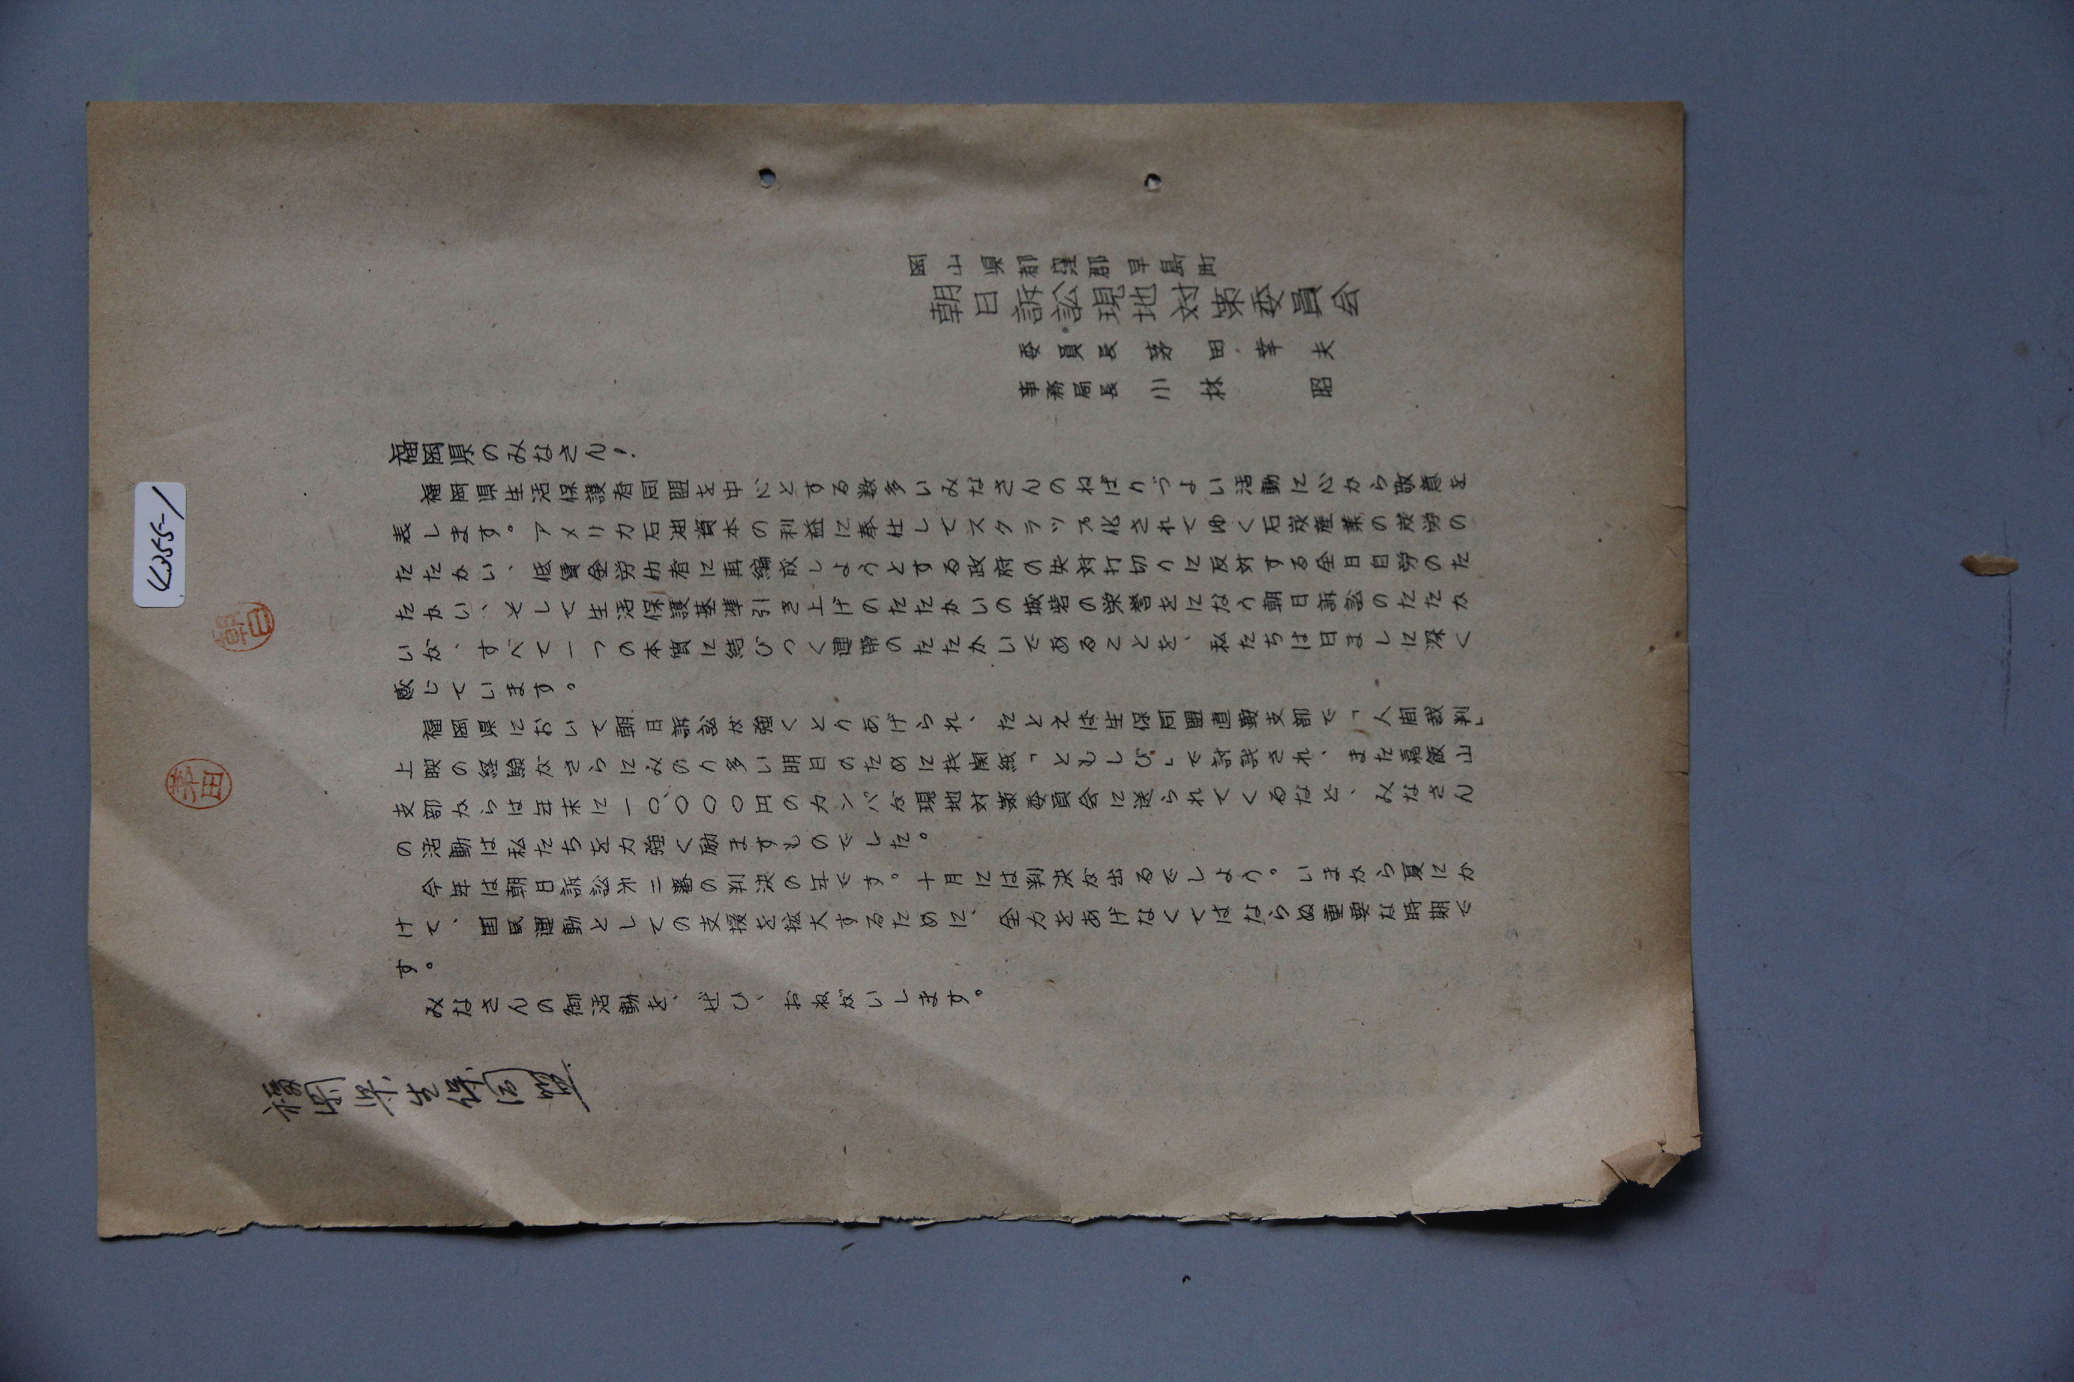 岡山県都窪郡早島町
朝日訴訟現地対策委員会
委員長 茅田幸夫
事務局長 小林 昭
福岡県のみなさん!
福岡県生活保護者同盟を中心とする数多いみなさんのねばりづよい活動に心から敬意を
表します。アメリカ石油資本の利益に奉仕してスクラップ化されてゆく石炭産業の炭労の
たたかい、低賃金労働者に再編成しようとする政府の失対打切りに反対する全日自労のた
たかい、そして生活保護基準引き上げのたたかいの城砦の栄誉をになう朝日訴訟のたたか
いが、すべて一つの本質に結びつく連帯のたたかいであることを、私たちは日ましに深く
感じています。
福岡県において朝日訴訟が強くとりあげられ、たとえば生保同盟直鞍支部で「人間裁判」
上映の経験がさらにみのり多い明日のために機関紙「ともしび」で討議され、また嘉飯山
支部からは年末に一〇、〇〇〇円のカンパが現地対策委員会に送られてくるなど、みなさん
の活動は私たちを力強く励ますものでした。
今年は朝日訴訟第二審の判決の年です。十月には判決が出るでしょう。いまから夏にか
けて、国民運動としての支援を拡大するために、全力をあげなくてはならぬ重要な時期で
す。
みなさんの御活動を、ぜひ、おねがいします。
福岡県生保同盟
K255-1